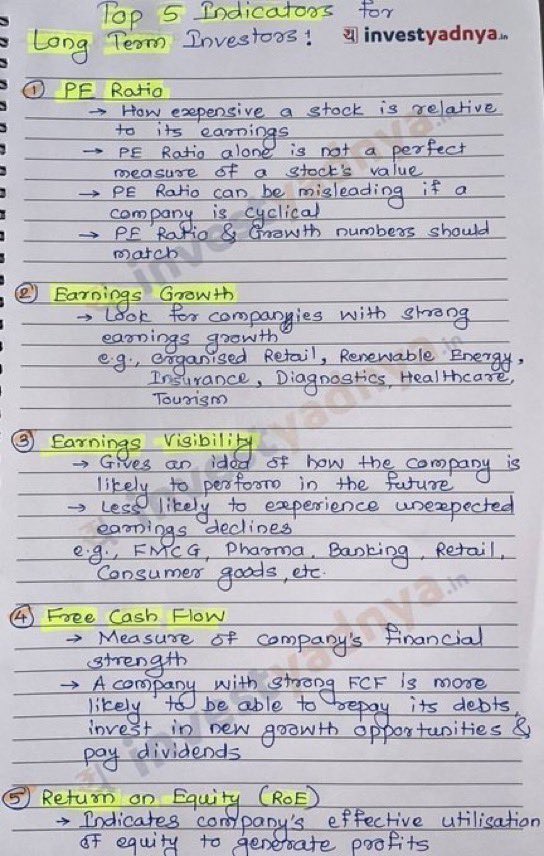 Top 5 Indicators for
Long Term Investors! या investyadnya.in
① PE Ratio
→ How expensive a stock is relative
to its earnings
→ PE Ratio alone is not a perfect
measure of a stock's value
→ PE Ratio can be misleading if a
company is cyclical
→ PE Ratio & Growth numbers should
match
② Earnings Growth
→ Look for companies with strong
earnings growth
e.g., Organised Retail, Renewable Energy,
Insurance, Diagnostics, Healthcare,
Tourism
③ Earnings Visibility
→ Gives an idea of how the company is
likely to perform in the future
→ Less likely to experience unexpected
earnings declines
e.g., FMCG, Pharma, Banking, Retail,
Consumer goods, etc.
④ Free Cash Flow
→ Measure of company's financial
strength
→ A company with strong FCF is more
likely to be able to repay its debts,
invest in new growth opportunities &
pay dividends
⑤ Return on Equity (RoE)
→ Indicates company's effective utilisation
of equity to generate profits
investyadnya.in
investyadnya.in
investyadnya.in